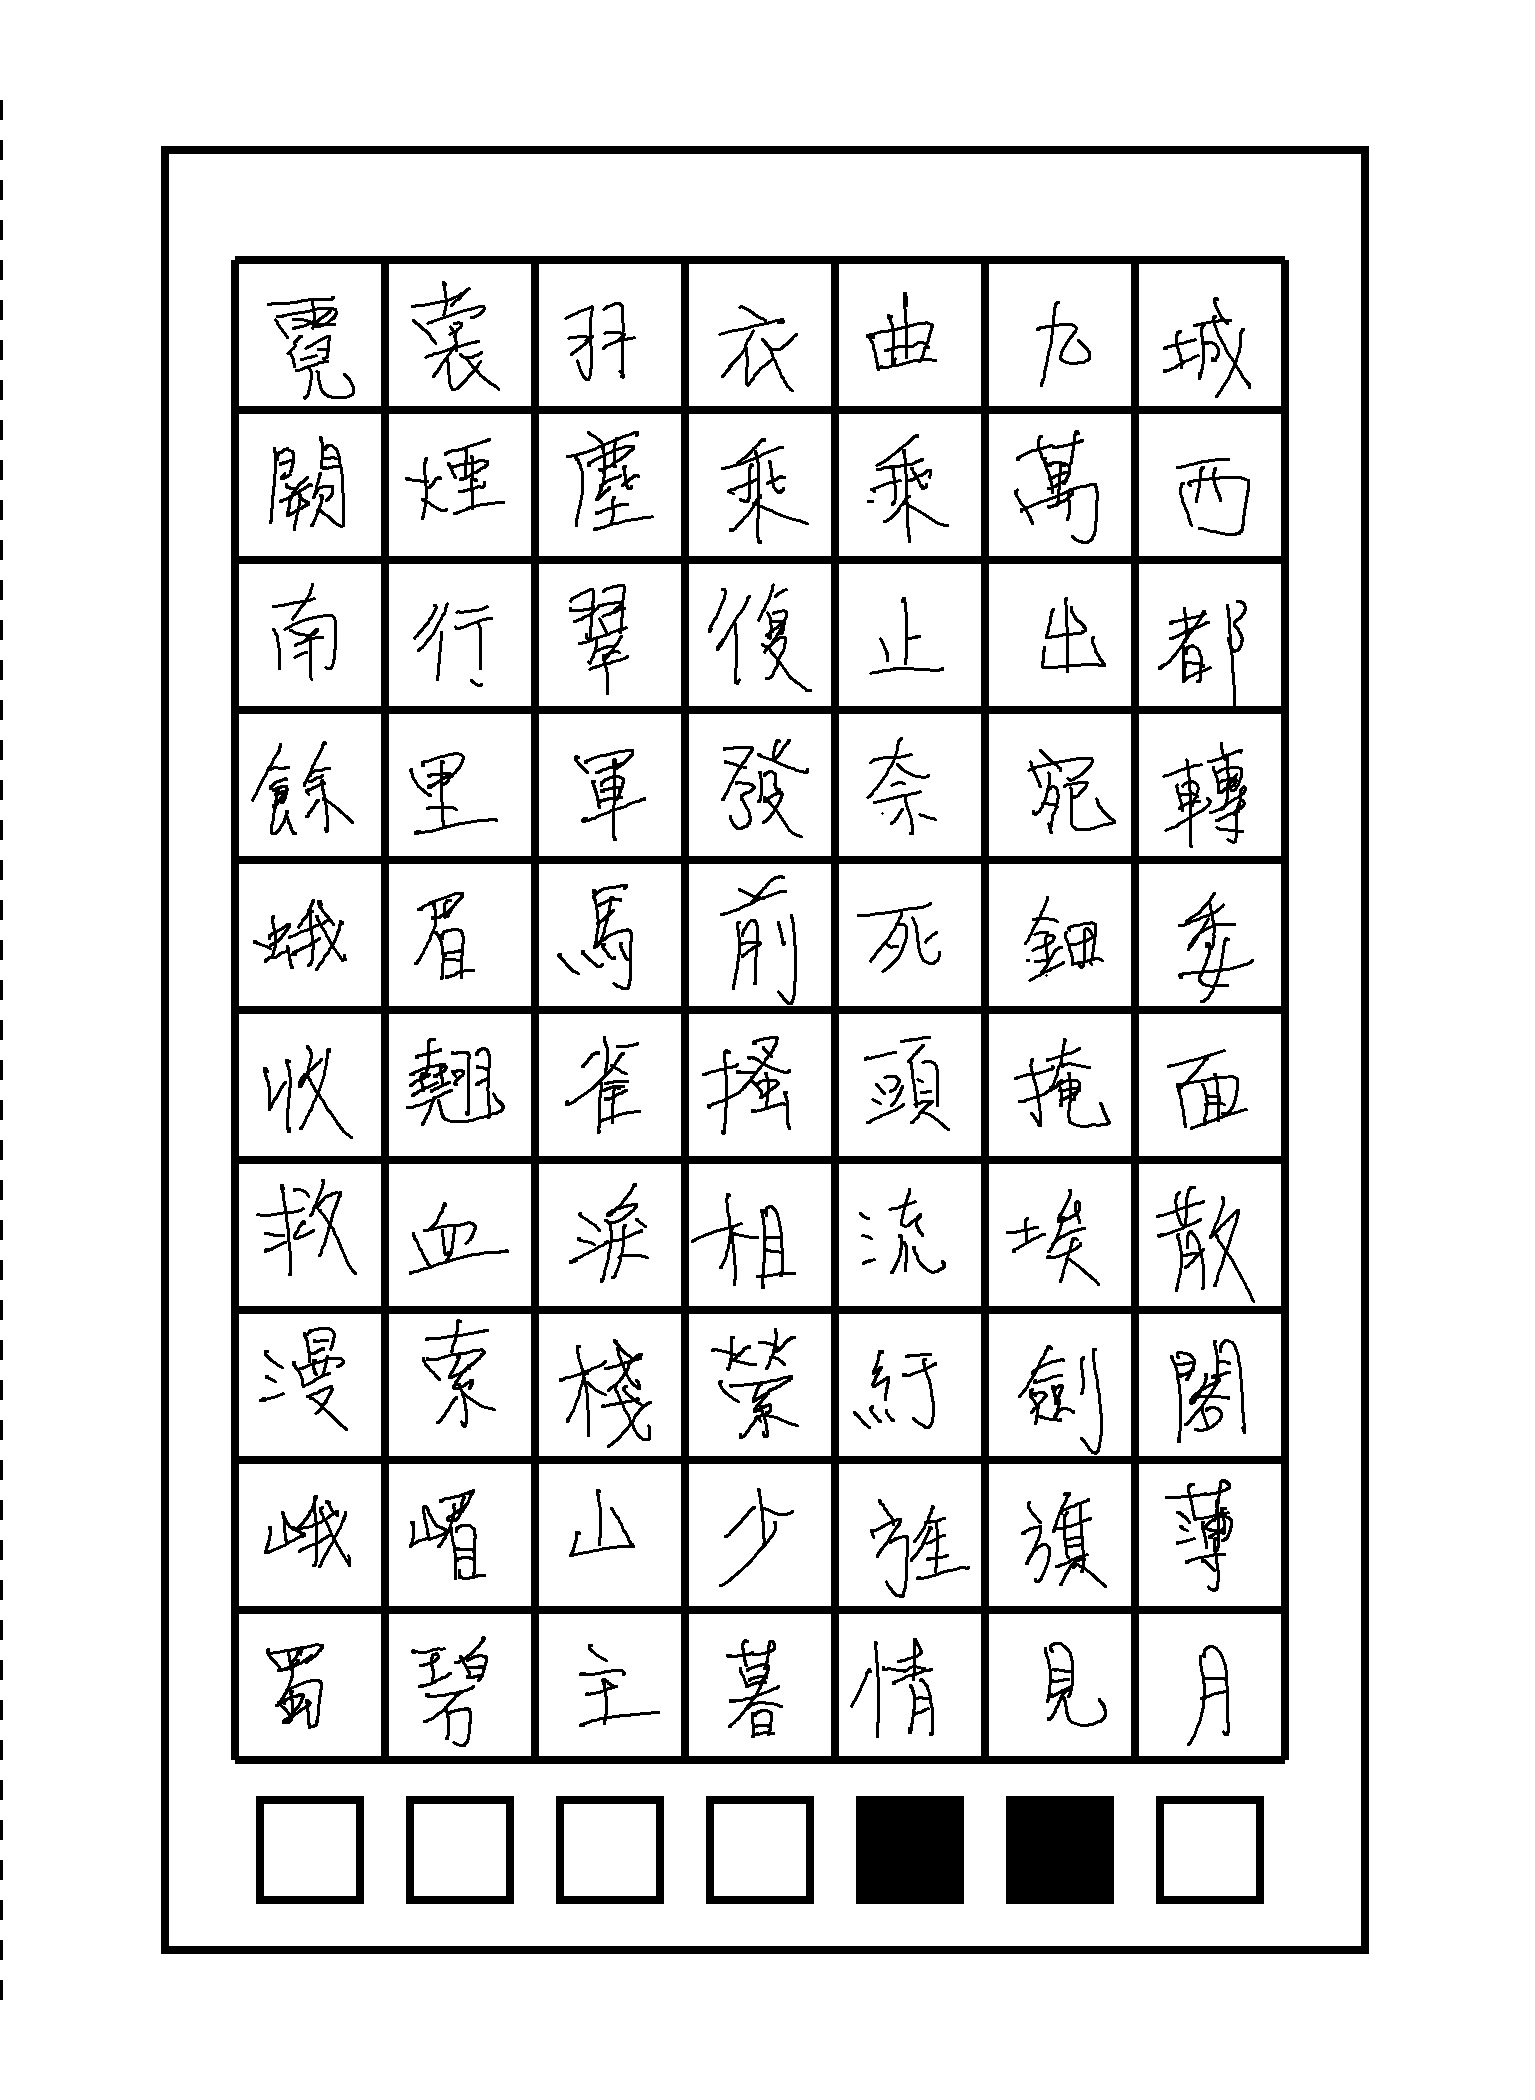 霓裳羽衣曲九城
闕煙塵乘乘萬西
南行翠復止出都
餘里軍發奈宛轉
蛾眉馬前死鈿委
收翹雀搔頭掩面
救血淚相流埃散
漫索棧縈紆劍閣
峨嵋山少旌旗薄
蜀碧主暮情見月